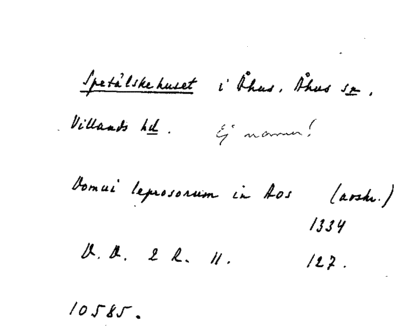 Spetälskehuset i Åhus, Åhus sn,
Villands hd. Ej namn!
Domui leprosorum in Aos (avskr.)
1334
D. D. 2 R. 11. 127.
10585.